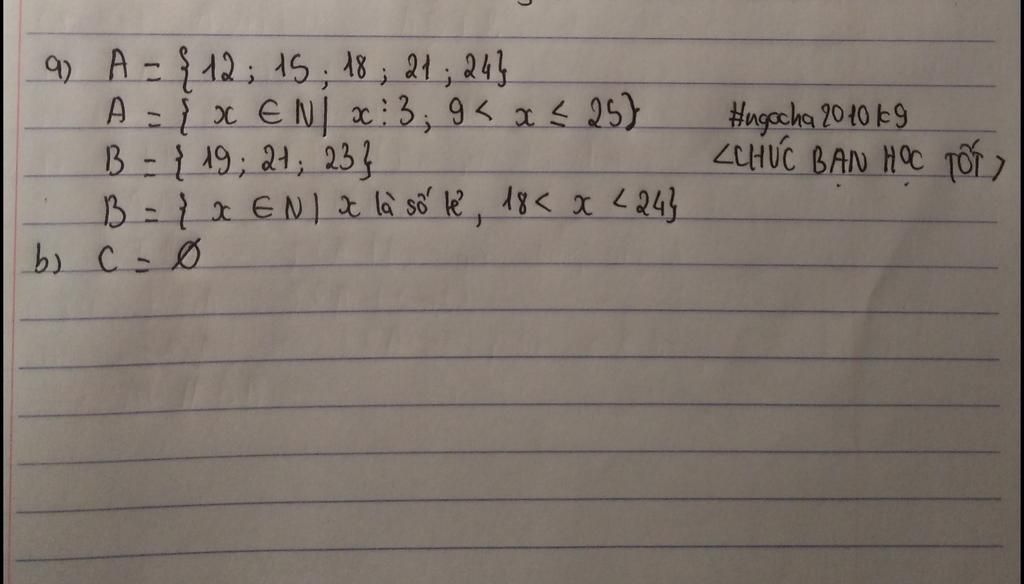 a) A = { 12 ; 15 ; 18 ; 21 ; 24}
A = { x ∈ N | x ⋮ 3 ; 9 < x ≤ 25}
#ngocha2010k9
B = { 19 ; 21 ; 23 }
<CHÚC BẠN HỌC TỐT>
B = { x ∈ N | x là số lẻ , 18 < x < 24}
b) C = Ø